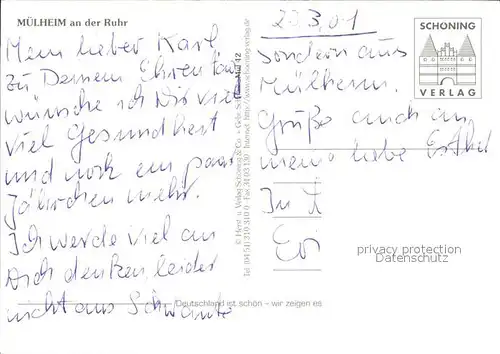 MÜLHEIM an der Ruhr
Mein lieber Karl,
zu Deinem Ehrentag
wünsche ich Dir viel
viel Gesundheit
und noch ein paar
Jährchen mehr.
Ich werde viel an
Dich denken, leider
nicht aus Schwante
23.3.01
sondern aus
Mülheim.
Grüße auch an
meine liebe Esther
In L
Evi
SCHÖNING
VERLAG
© Herst. u. Verlag Schöning & Co. + Gebr. Schmidt
Tel. (04 51) 310 310 · Fax 31 03 130 · Internet: http://www.schoening-verlag.de
Deutschland ist schön – wir zeigen es
privacy protection
Datenschutz